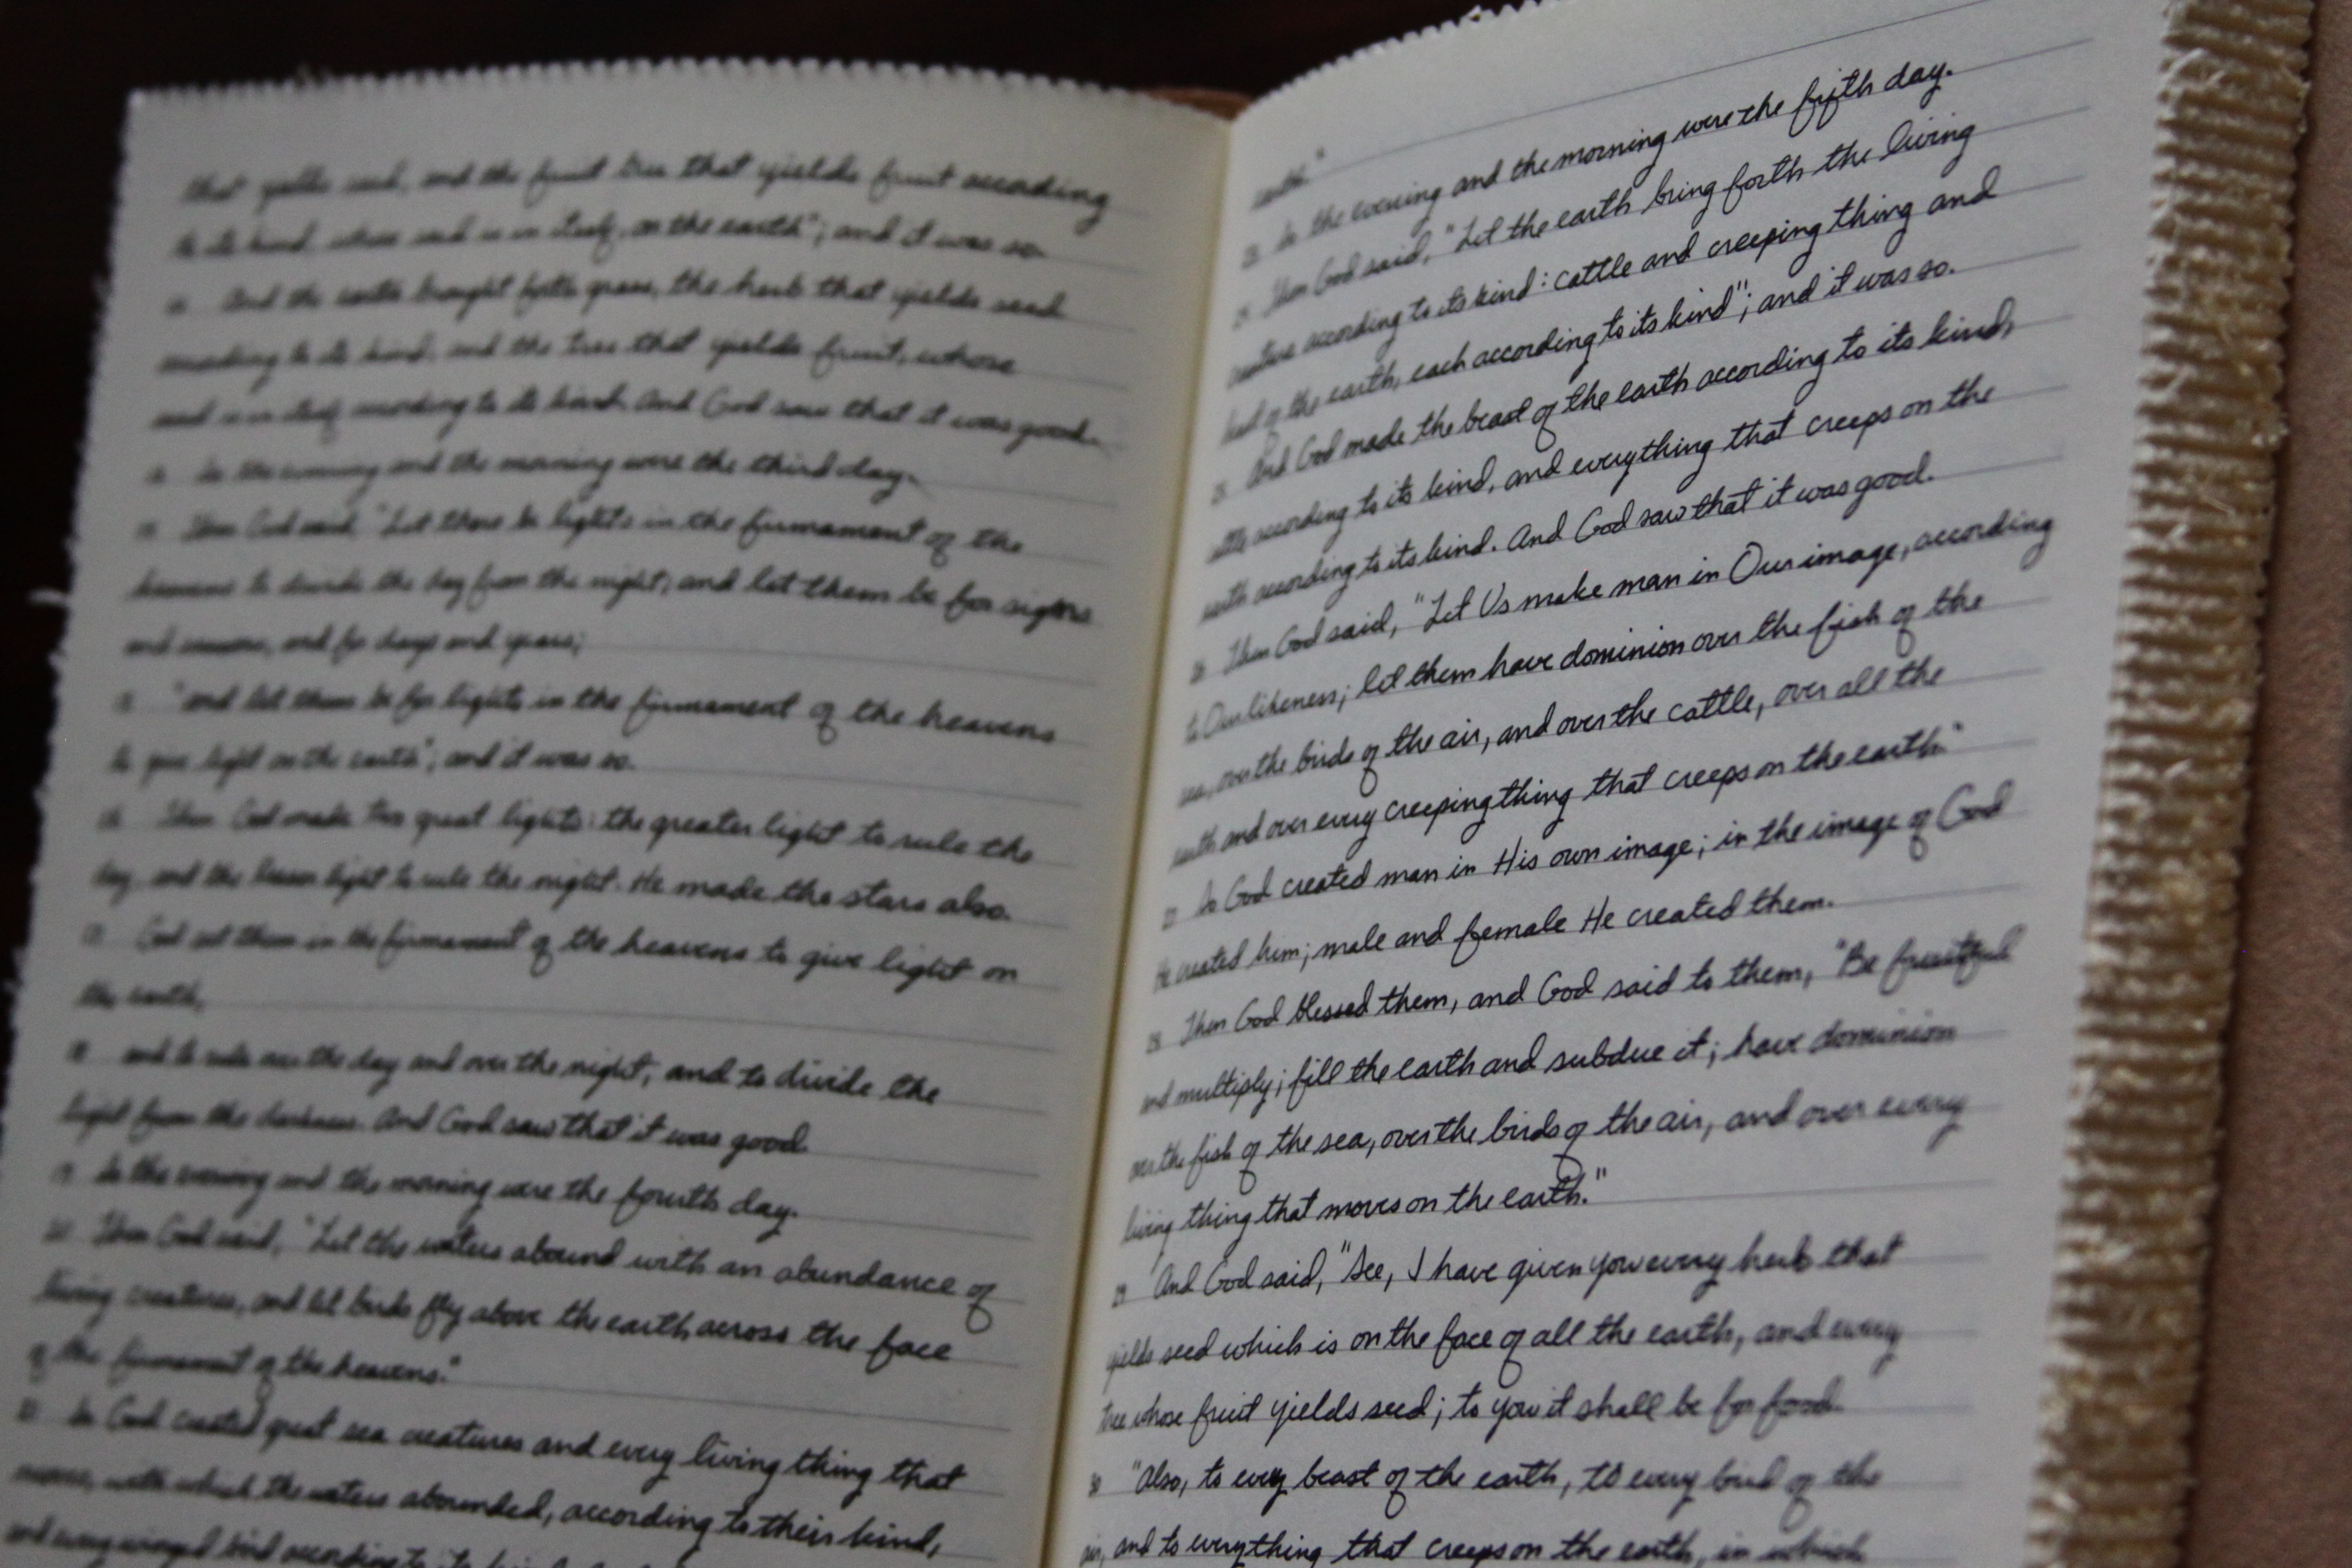 that yields seed, and the fruit tree that yields fruit according
to its kind, whose seed is in itself, on the earth"; and it was so.
And the earth brought forth grass, the herb that yields seed
according to its kind, and the tree that yields fruit, whose
seed is in itself according to its kind. And God saw that it was good.
So the evening and the morning were the third day.
Then God said, "Let there be lights in the firmament of the
heavens to divide the day from the night; and let them be for signs
and seasons, and for days and years;
"and let them be for lights in the firmament of the heavens
to give light on the earth"; and it was so.
16 Then God made two great lights: the greater light to rule the
day, and the lesser light to rule the night. He made the stars also.
17 God set them in the firmament of the heavens to give light on
the earth,
18 and to rule over the day and over the night, and to divide the
light from the darkness. And God saw that it was good.
19 So the evening and the morning were the fourth day.
20 Then God said, "Let the waters abound with an abundance of
living creatures, and let birds fly above the earth across the face
of the firmament of the heavens."
21 So God created great sea creatures and every living thing that
moves, with which the waters abounded, according to their kind,
and every winged bird according to its kind.
earth."
23 So the evening and the morning were the fifth day.
24 Then God said, "Let the earth bring forth the living
creature according to its kind: cattle and creeping thing and
beast of the earth, each according to its kind"; and it was so.
25 And God made the beast of the earth according to its kind,
cattle according to its kind, and everything that creeps on the
earth according to its kind. And God saw that it was good.
26 Then God said, "Let Us make man in Our image, according
to Our likeness; let them have dominion over the fish of the
sea, over the birds of the air, and over the cattle, over all the
earth and over every creeping thing that creeps on the earth."
27 So God created man in His own image; in the image of God
He created him; male and female He created them.
28 Then God blessed them, and God said to them, "Be fruitful
and multiply; fill the earth and subdue it; have dominion
over the fish of the sea, over the birds of the air, and over every
living thing that moves on the earth."
29 And God said, "See, I have given you every herb that
yields seed which is on the face of all the earth, and every
tree whose fruit yields seed; to you it shall be for food.
30 "Also, to every beast of the earth, to every bird of the
air, and to everything that creeps on the earth, in which